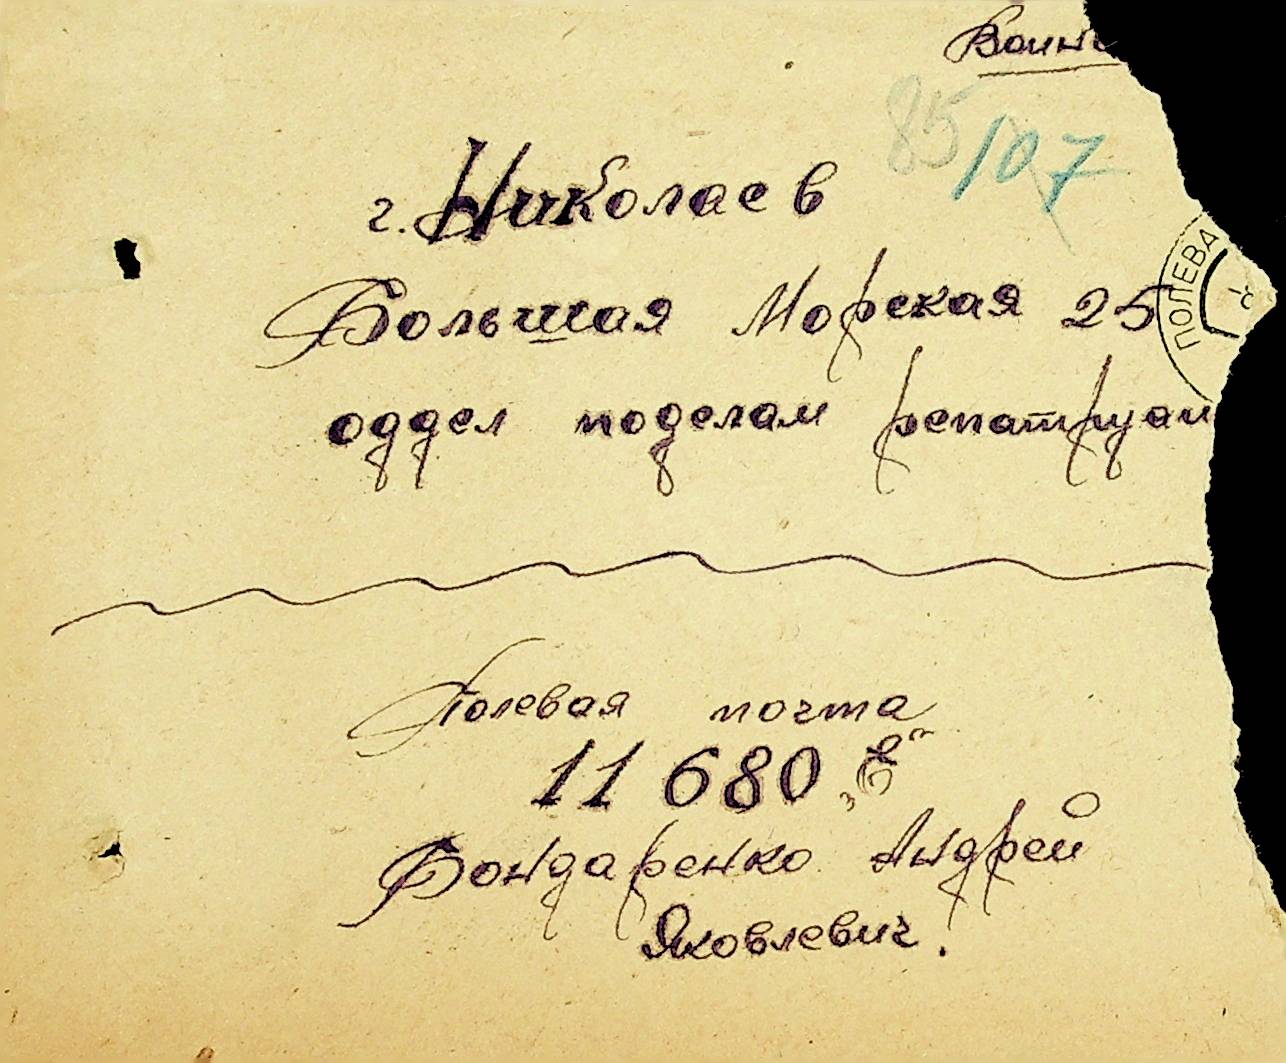 Воинс
85 107
г. Николаев
Большая Морская 25
ПОЛЕВА
оддел поделам репатруаи
Полевая почта
11680 „В"
Бондаренко Андрей
Яковлевич.